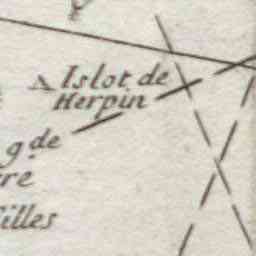 Islot de
Herpin
gde
re
illes